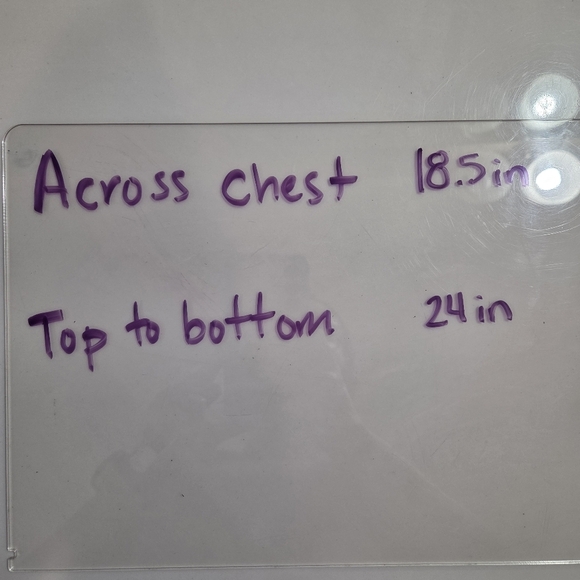 Across chest 18.5in
Top to bottom 24in